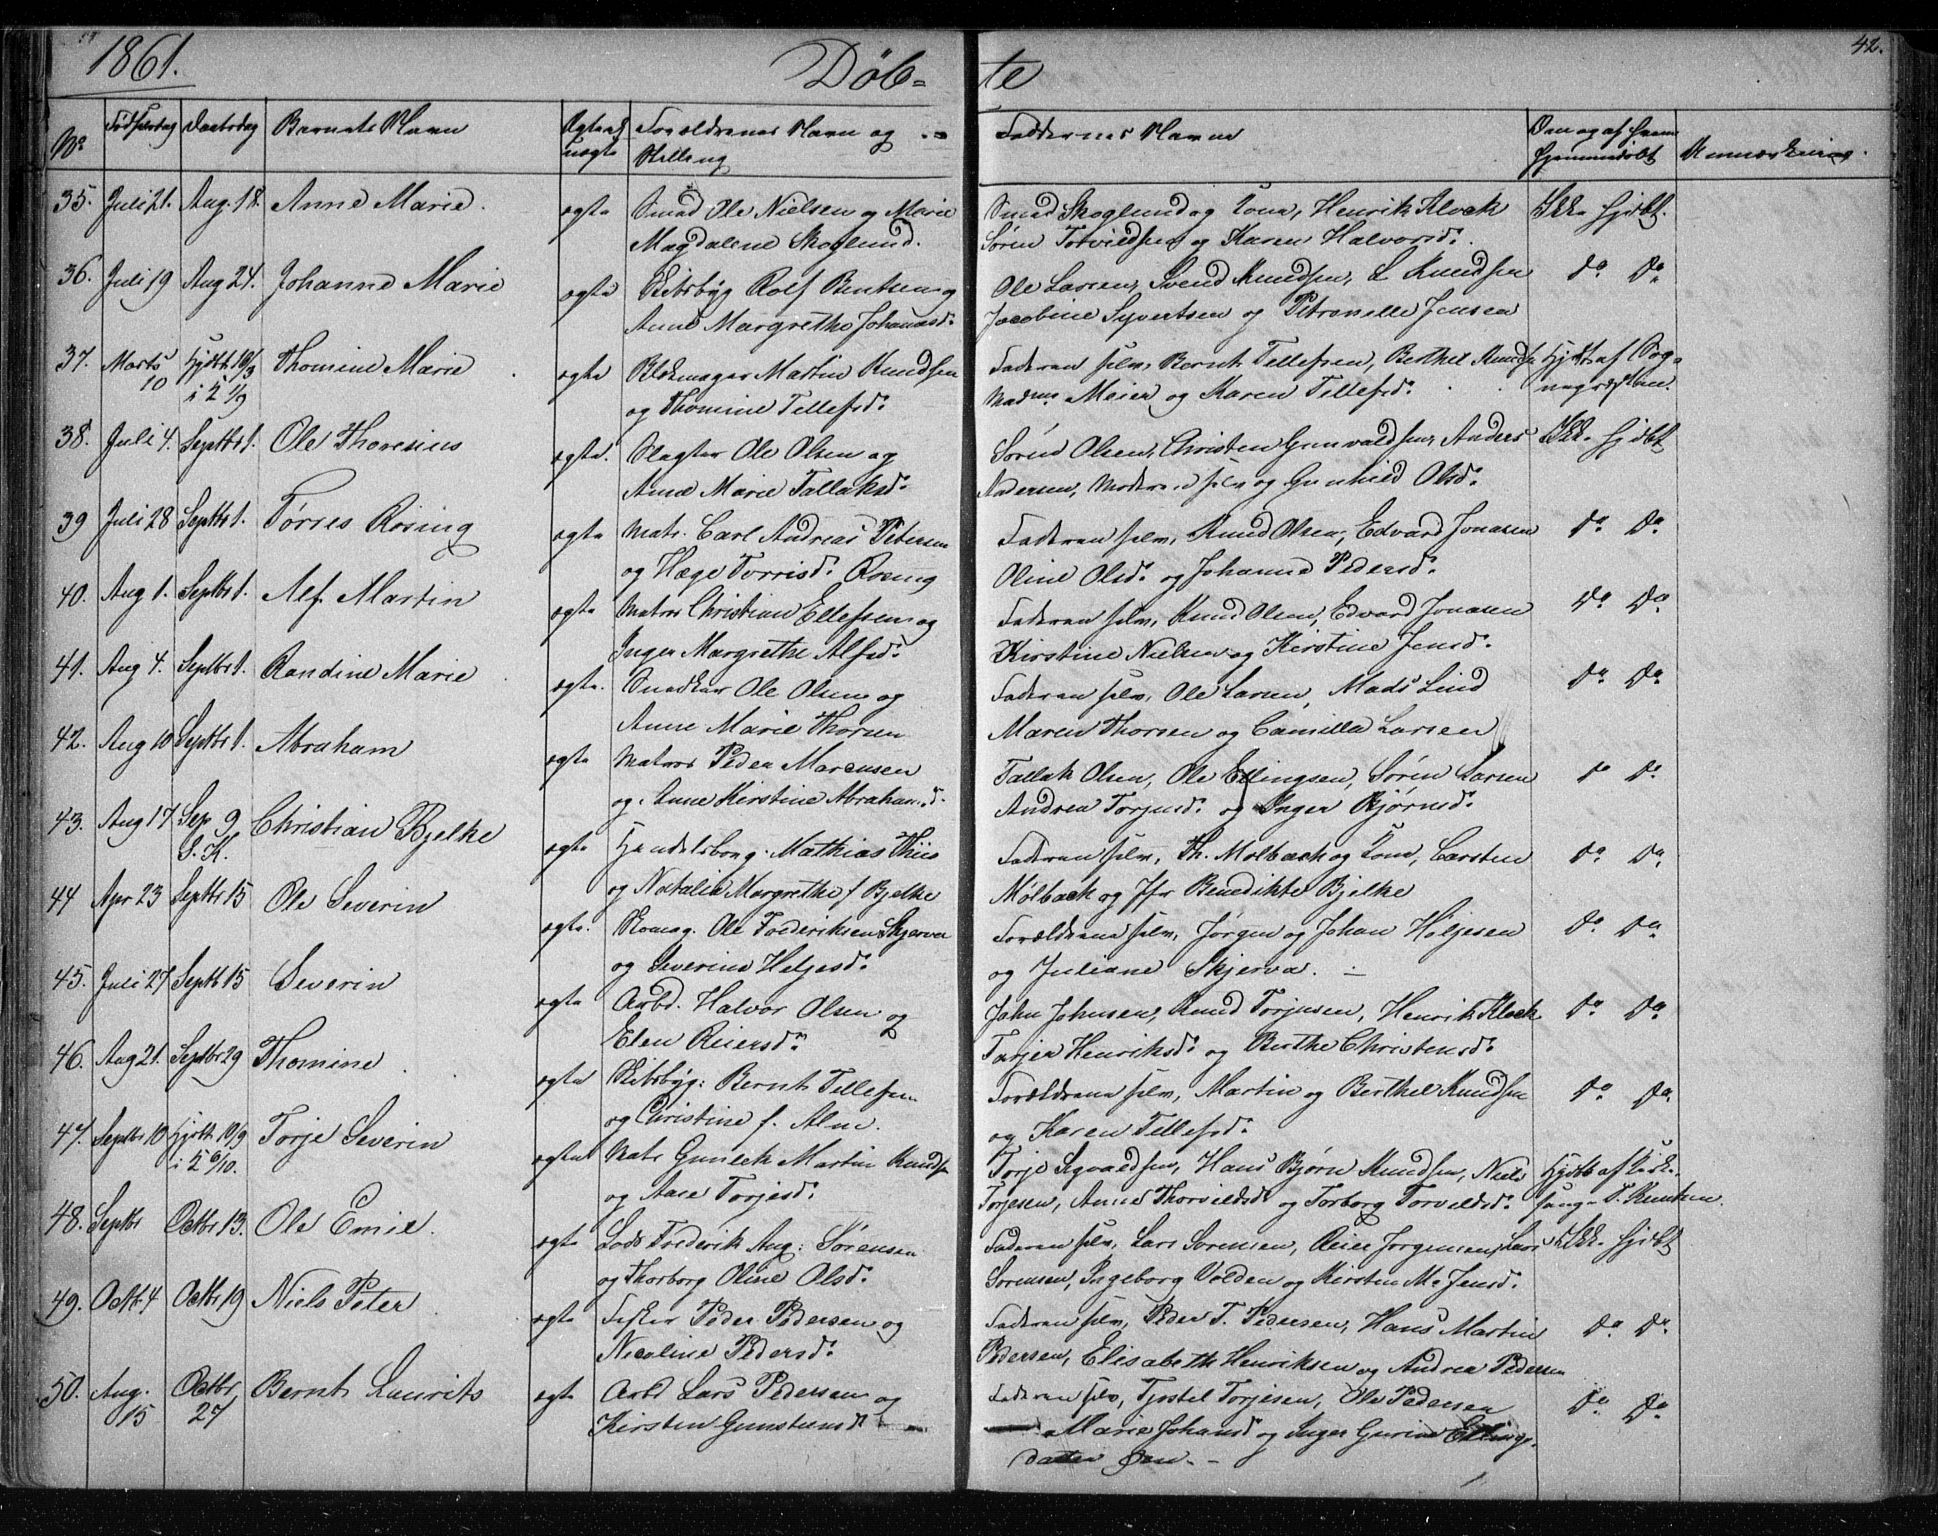 1861. Døb= te 42.
No Fødselsdag Daabsdag Barnets Navn Ægte el uægte Forældrenes Navn og Stilling Faddernes Navne Om og af hvem hjemmedøbt Anmærkning.
35. Juli 21. Aug. 18. Anne Marie. ægte Smed Ole Nielsen og Marie Smed Skoglund og Kone, Henrik Klock Ikke hjdbt.
Magdalene Skoglund. Søren Torvildsen og Karen Halvorsd.
36. Juli 19 Aug 24. Johanne Marie ægte Skibsbyg Rolf Bentsen og Ole Larsen, Svend Knudsen, L Knudsen Do Do
Anne Margrethe Johannesd. Jacobine Syvertsen og Petronelle Jensen
37. Marts 10 Hjdbt 10/3 i K 1/9 Thomine Marie ægte Blokmager Martin Knudsen Faderen selv, Bernt Tellefsen, Berthel Knudsen Hjdbt af Sog-
og Thomine Tellefsd. Madme Meier og Karen Tellefsd. nepræsten.
38. Juli 4. Septbr 1. Ole Thoresius ægte. Slagter Ole Olsen og Søren Olsen, Christen Gunvaldsen, Anders Ikke hjdbt
Anne Marie Tallaksd. Andersen, Moderen selv og Gunhild Olsd.
39 Juli 28 Septbr 1. Tørres Rosing ægte Matr. Carl Andreas Petersen Faderen selv, Knud Olsen, Edvard Jonasen Do Do
og Hæge Torrisd. Rosing Oline Olsd. og Johanne Pedersd.
40. Aug 1. Septbr 1. Alf Martin ægte Matros Christian Ellefsen og Faderen selv, Knud Olsen, Edvard Jonasen Do Do
Inger Margrethe Alfsd. Kirstine Nielsen og Kirstine Jensd.
41. Aug 4. Septbr 1. Randine Marie ægte. Snedker Ole Olsen og Faderen selv, Ole Larsen, Mads Lind Do Do
Anne Marie Thorsen Maren Thorsen og Camilla Larsen
42. Aug 10 Septbr 1. Abraham ægte Matros Peder Marcusen Tallak Olsen, Ole Ellingsen, Søren Larsen Do Do
og Anne Kirstine Abrahamsd. Andrea Torjusd. og Inger Bjørnsd.
43. Aug 17 Sep 9 S. K. Christian Bjelke ægte Handelsborg. Mathias Thiis Faderen selv, Th. Mølback og Kone, Carsten Do Do
og Natalia Margrethe f Bjelke Mølback og Jfr Benedikte Bjelke
44 Apr 23 Septbr 15 Ole Severin ægte. Skomag. Ole Frederiksen Skjerva Forældrene selv, Jørgen og Johan Høljesen Do Do
og Severine Heljesd. og Juliane Skjerva.
45. Juli 27 Septb 15 Severin ægte Arbd. Halvor Olsen og John Johnsen, Knud Torjusen, Henrik Klock Do Do
Elen Reiersd. Tarjer Henriksd. og Berthe Christensd.
46. Aug 21. Septbr 29 Thomine ægte Skibsbyg: Bernt Tellefsen Forældrene selv, Martin og Berthel Knudsen Do Do
og Christine f. Alm. og Karen Tellefsd.
47. Septbr 10 Hjdbt 10/9 i K 6/10. Torje Severin ægte Matr Gunlek Martin Knudsen Torje Sigvaldsen, Hans Bjørn Knudsen, Niels Hjdbt af Kirke-
og Aase Torjesd. Torjesen, Anne Thorvildsd og Torborg Torvildsd. sang.
48. Septbr Octbr 13. Ole Emil. ægte Lods Frederik Aug: Sørensen Faderen selv, Lars Sørensen, Reier Jørgensen, Lars Ikke hjdbt
og Thorborg Oline Olsd. Sørensen, Ingeborg Volden og Kirsten M. Jensd.
49. Octb 4 Octbr 19 Niels Peter ægte Fisker Peder Pedersen og Faderen selv, Peder T. Pedersen, Hans Martin Do Do
Nicoline Pedersd. Pedersen, Elisabeth Henriksen og Andrea Pedersen
50. Aug. 15 Octbr 27 Bernt Laurits ægte Arbd Lars Pedersen og Faderen selv, Tjøstel Torjesen, Ole Pedersen Do Do
Kirsten Gunstensd. Marie Johansd og Inger Gurine Ellings-
datter Øen.